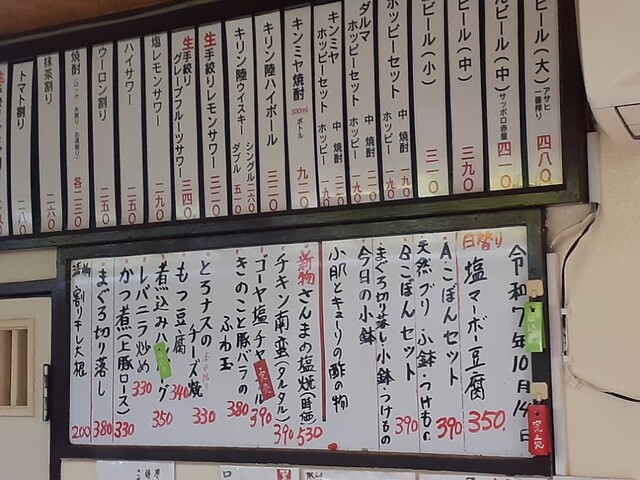 ビール(大) アサヒ 一番搾り 四八〇
ビール(中) サッポロ赤星 四一〇
ビール(中) 三九〇
ビール(小) 三一〇
ホッピーセット ホッピー 一九〇
ダルマ ホッピーセット 中 焼酎 ホッピー 一九〇
キンミヤ ホッピーセット 中 焼酎 ホッピー 一九〇
キンミヤ焼酎 300ml ボトル 九二〇
キリン陸ハイボール 三二〇
キリン陸ウイスキー シングル 二六〇 ダブル 五一〇
生手絞りレモンサワー 三二〇
生手絞りグレープフルーツサワー 三四〇
塩レモンサワー 二九〇
ハイサワー 二五〇
ウーロン割り 二五〇
焼酎(ロック 水割り お湯割り) 各二三〇
抹茶割り 二六〇
トマト割り 二八〇
令和7年10月14日
日替り 塩マーボー豆腐 350
Aこぼんセット 390
天然ブリ 小鉢・つけもの
Bこぼんセット 390
まぐろ切り落し・小鉢・つけもの
今日の小鉢
小肌とキューリの酢の物
新物さんまの塩焼 530
チキン南蛮(タルタル) 390
ゴーヤ塩チャンプル 390
完売
きのこと豚バラのふわ玉 380
とろナスのチーズ焼 330
もつ豆腐 340
煮込みハンバーグ 350
レバニラ炒め 330
かつ煮(上豚ロース) 330
まぐろ切り落し 380
漬物 割り干し大根 200
完売